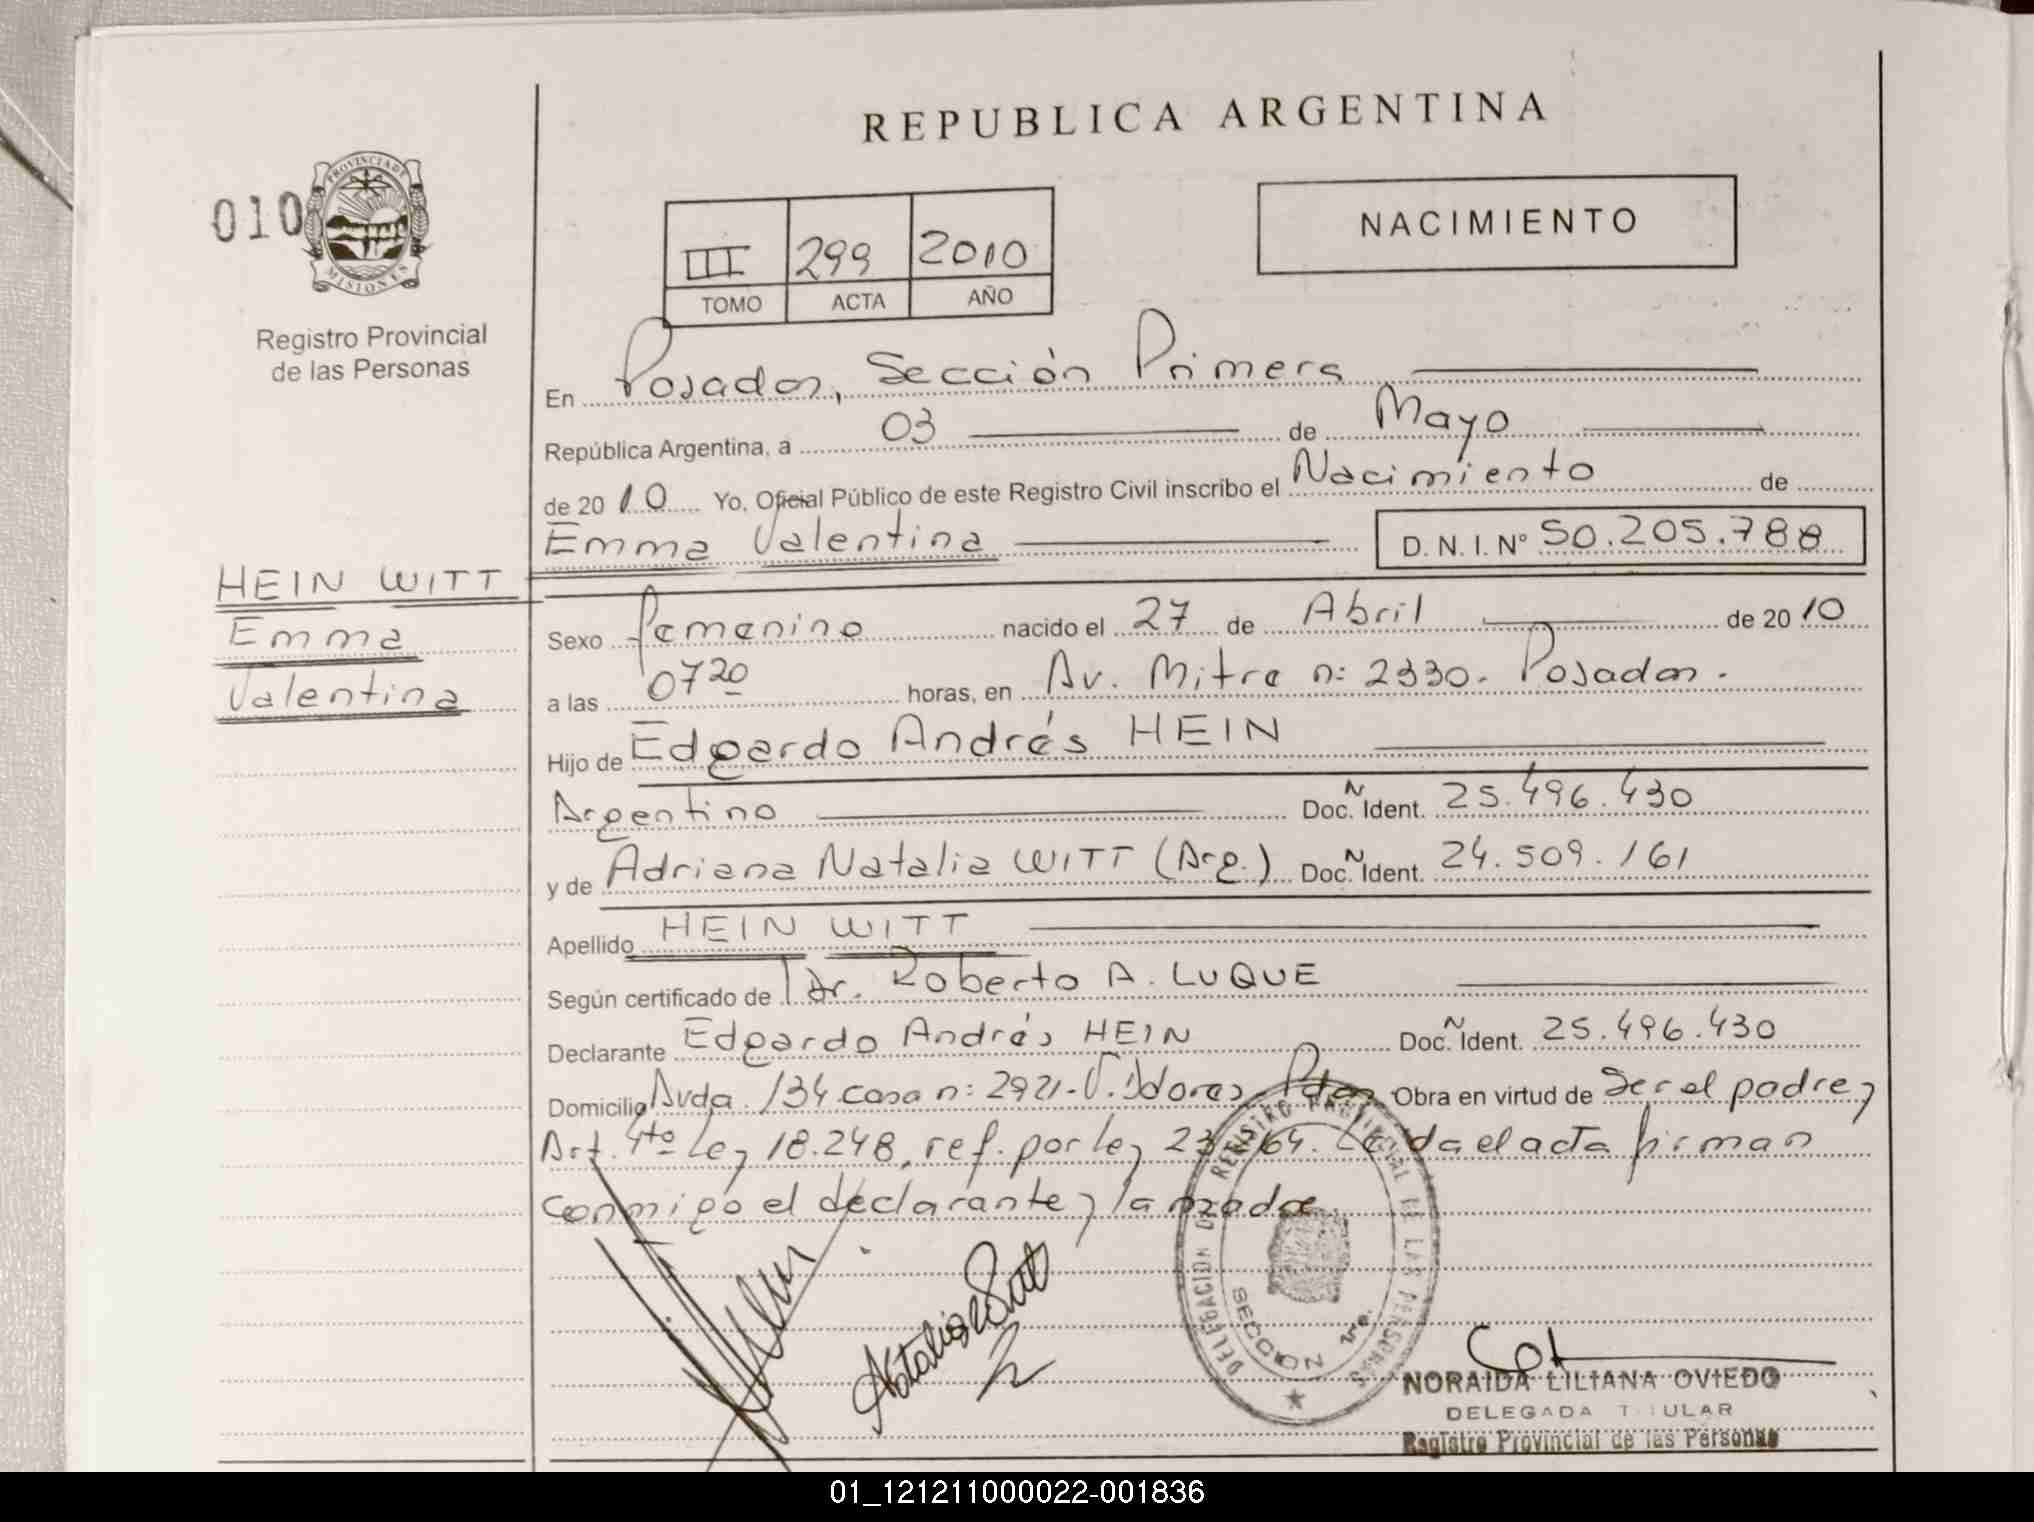 REPUBLICA ARGENTINA
010
PROVINCIA DE
MISIONES
Registro Provincial
de las Personas
III 299 2010
TOMO ACTA AÑO
NACIMIENTO
En Posadas, Sección Primera
República Argentina, a 03 de Mayo
de 2010 Yo, Oficial Público de este Registro Civil inscribo el Nacimiento de
Emma Valentina D. N. I. Nº 50.205.788
HEIN WITT
Emma
Valentina
Sexo femenino nacido el 27 de Abril de 2010
a las 0720 horas, en Av. Mitre n: 2330. Posadas.
Hijo de Edgardo Andrés HEIN
Argentino Doc. Ñ Ident. 25.496.430
y de Adriana Natalia WITT (Arg.) Doc. Ñ Ident. 24.509.161
Apellido HEIN WITT
Según certificado de Dr. Roberto A. LUQUE
Declarante Edgardo Andrés HEIN Doc. Ñ Ident. 25.496.430
Domicilio Avda. 134 casa n: 2921-V. Dolores Pdas Obra en virtud de Ser el padre y
Art. 4to Ley 18.248, ref. por ley 23.164. Leida el acta firman
conmigo el declarante y la madre
Natalia Witt
DELEGACION DE REGISTRO PROVINCIAL DE LAS PERSONAS
SECCION 1ra.
NORAIDA LILIANA OVIEDO
DELEGADA TITULAR
Registro Provincial de las Personas
01_121211000022-001836